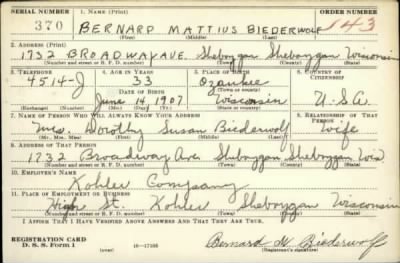 SERIAL NUMBER 1. NAME (Print) ORDER NUMBER
370 BERNARD MATTIUS BIEDERWOLF 143
(First) (Middle) (Last)
2. ADDRESS (Print)
1732 BROADWAY AVE. Sheboygan Sheboygan Wisconsin
(Number and street or R. F. D. number) (Town) (County) (State)
3. TELEPHONE 4. AGE IN YEARS 5. PLACE OF BIRTH 6. COUNTRY OF CITIZENSHIP
4514-J 33 Ozaukee
DATE OF BIRTH (Town or county)
June 14 1907 Wisconsin U.S.A.
(Exchange) (Number) (Mo.) (Day) (Yr.) (State or country)
7. NAME OF PERSON WHO WILL ALWAYS KNOW YOUR ADDRESS 8. RELATIONSHIP OF THAT PERSON
Mrs. Dorothy Susan Biederwolf Wife
(Mr., Mrs., Miss) (First) (Middle) (Last)
9. ADDRESS OF THAT PERSON
1732 Broadway Ave Sheboygan Sheboygan Wis
(Number and street or R. F. D. number) (Town) (County) (State)
10. EMPLOYER'S NAME
Kohler Company
11. PLACE OF EMPLOYMENT OR BUSINESS
High St. Kohler Sheboygan Wisconsin
(Number and street or R. F. D. number) (Town) (County) (State)
I AFFIRM THAT I HAVE VERIFIED ABOVE ANSWERS AND THAT THEY ARE TRUE.
REGISTRATION CARD
D. S. S. Form 1 (over) 16-17105 Bernard M Biederwolf
(Registrant's signature)